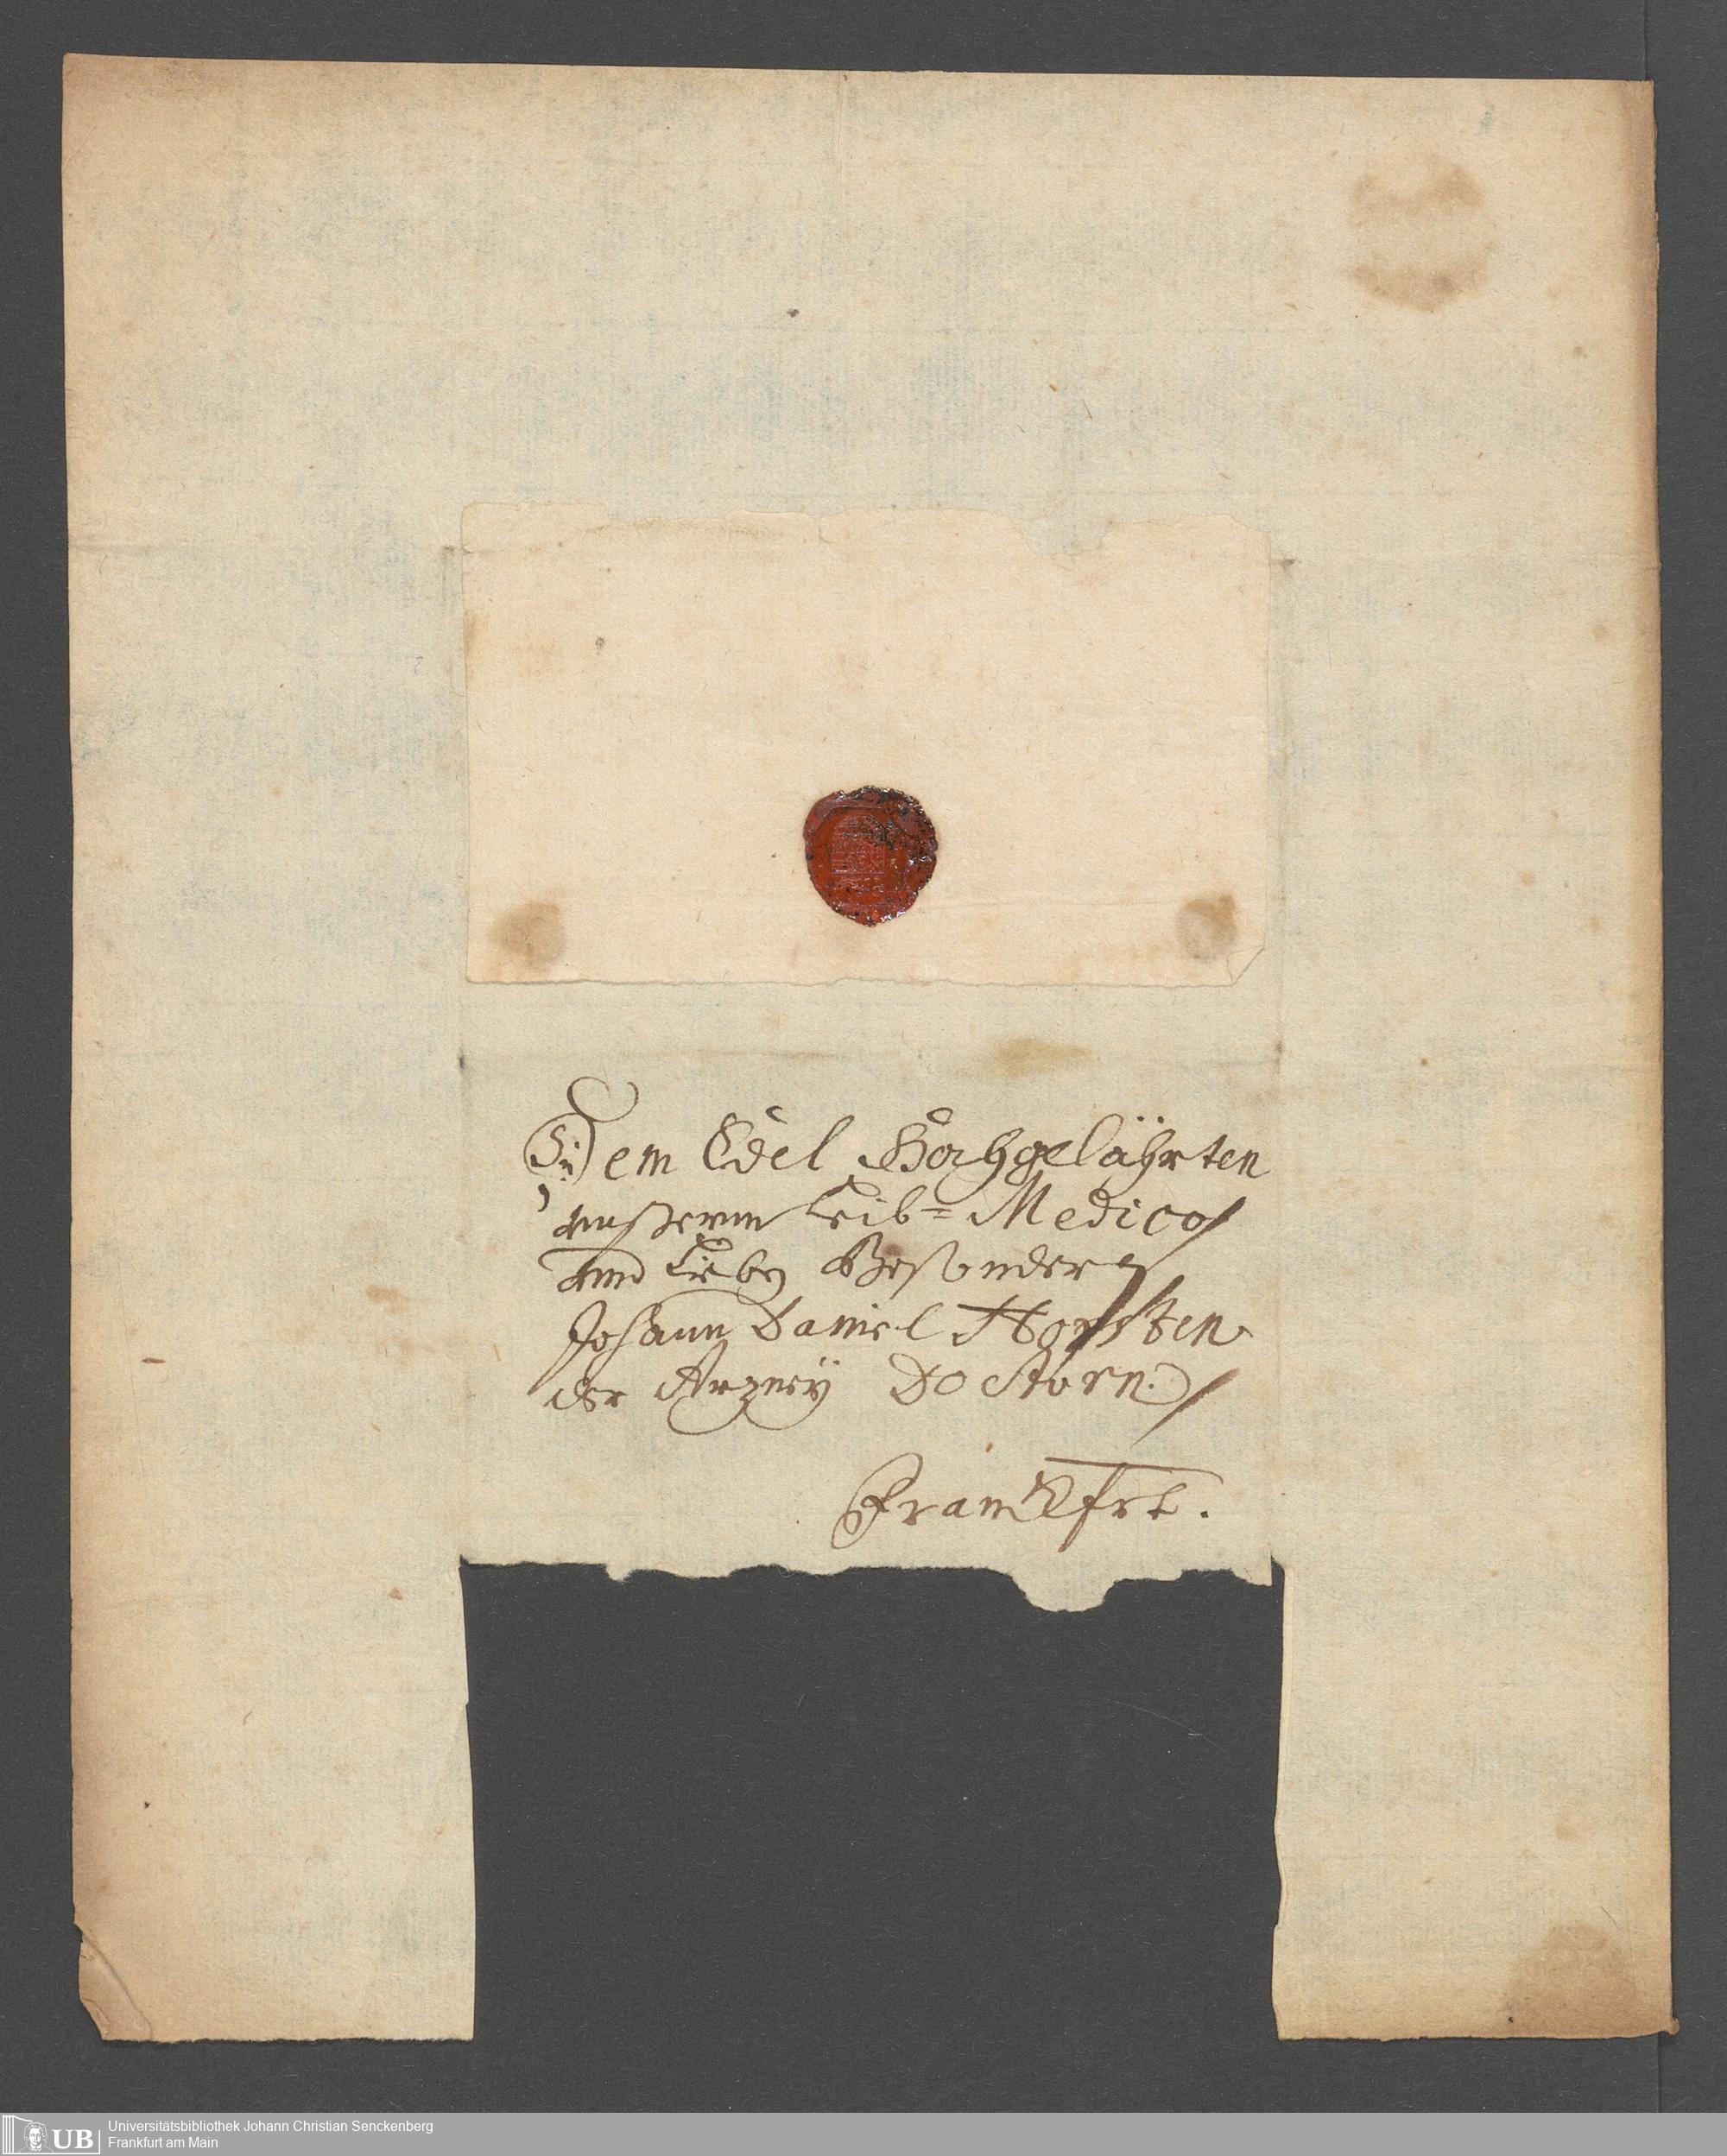 Dem Edel Hochgelährten
unserm Leib= Medico
und Lieben Besondern
Johann Daniel Horsten
der Arzney Doctorn.
Franckfrt.
UB
Universitätsbibliothek Johann Christian Senckenberg
Frankfurt am Main